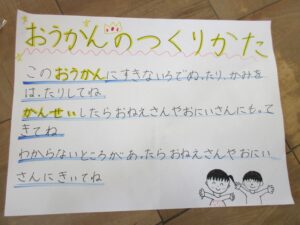 おうかんのつくりかた
このおうかんにすきないろでぬったり、かみを
はったりしてね。
かんせいしたらおねえさんやおにいさんにもって
きてね
わからないところがあったらおねえさんやおにい
さんにきいてね